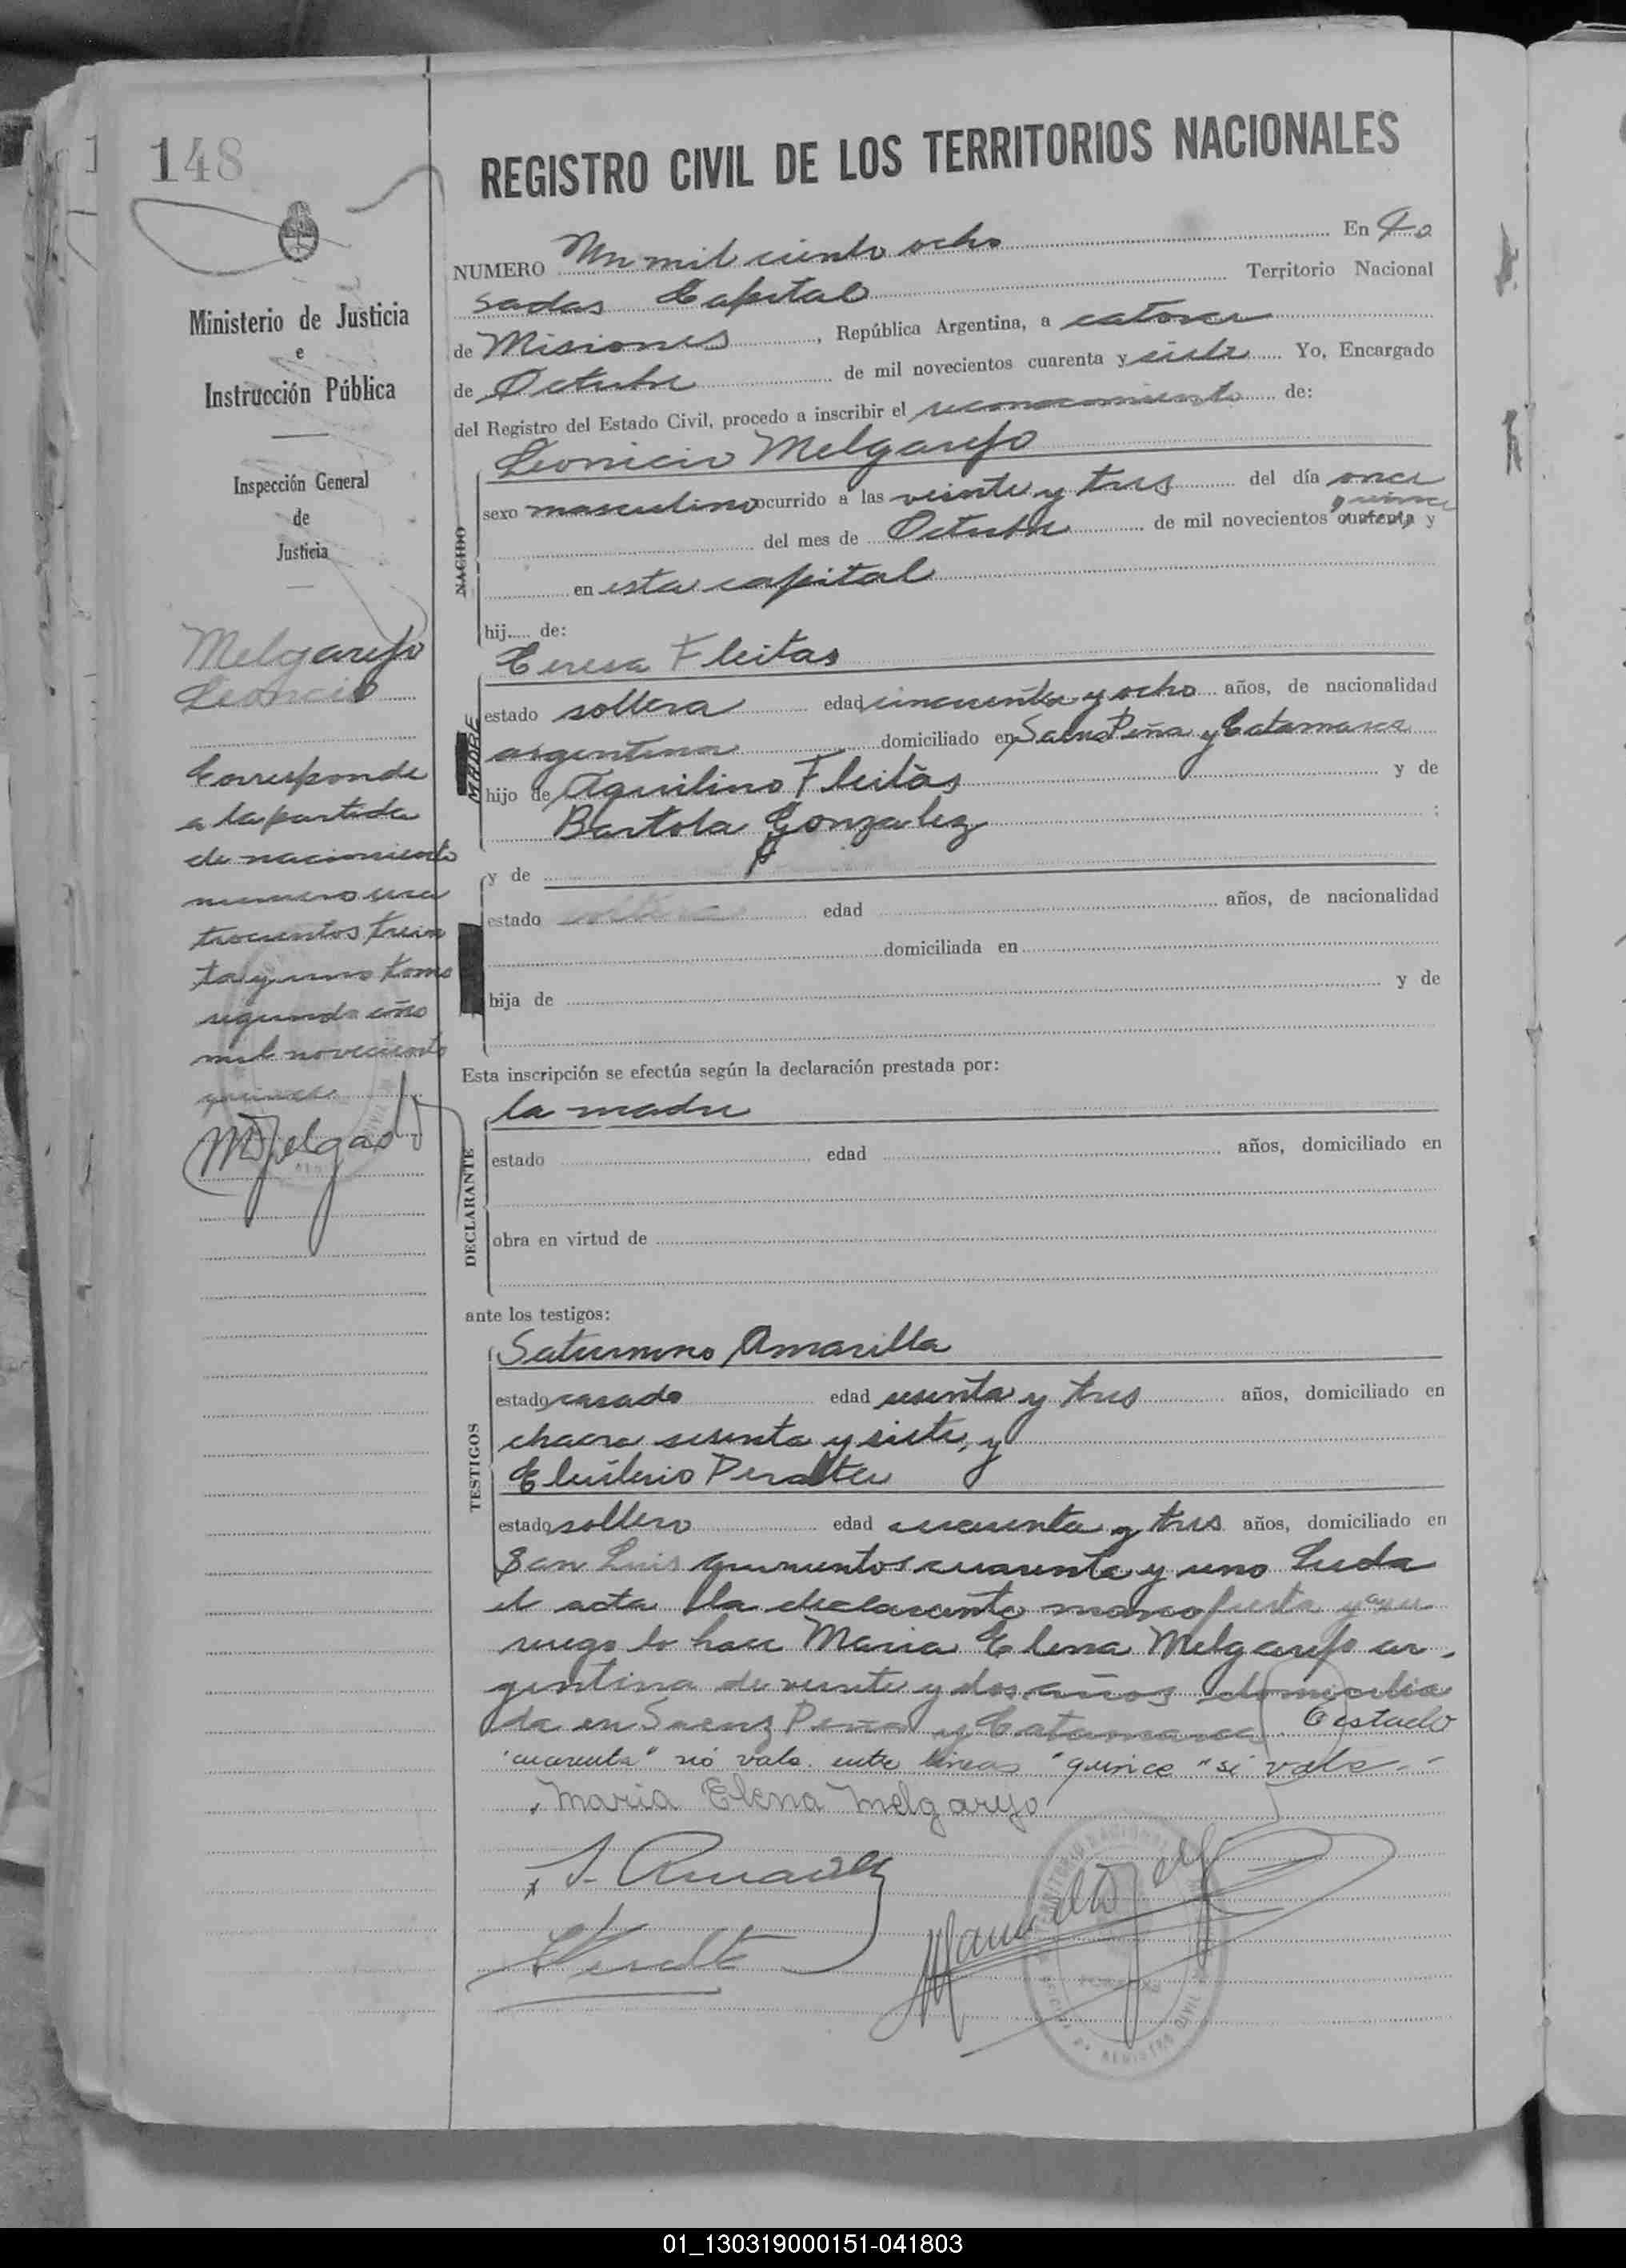 148
REGISTRO CIVIL DE LOS TERRITORIOS NACIONALES
NUMERO Un mil ciento ocho En Po
sadas Capital Territorio Nacional
de Misiones, República Argentina, a catorce
de Octubre de mil novecientos cuarenta y siete Yo, Encargado
del Registro del Estado Civil, procedo a inscribir el reconocimiento de:
Leonicio Melgarejo
sexo masculino ocurrido a las veinte y tres del día once
quince
del mes de Octubre de mil novecientos cuarenta y
en esta capital
hij de:
NACIDO
Teresa Fleitas
estado soltera edad cincuenta y ocho años, de nacionalidad
argentina domiciliado en Saenz Peña y Catamarca
hijo de Aquilino Fleitas y de
Bartola Gonzalez ;
MADRE
y de
estado edad años, de nacionalidad
domiciliada en
hija de y de
Esta inscripción se efectúa según la declaración prestada por:
la madre
estado edad años, domiciliado en
obra en virtud de
DECLARANTE
ante los testigos:
Saturnino Amarilla
estado casado edad sesenta y tres años, domiciliado en
chacra sesenta y siete, y
Eleuterio Peralta
estado soltero edad cuarenta y tres años, domiciliado en
San Luis quinientos cuarenta y uno Leida
TESTIGOS
el acta la declarante manifiesta y a su
ruego lo hace Maria Elena Melgarejo ar-
gentina de veinte y dos años domicilia
da en Saenz Peña y Catamarca testado
"cuarenta" no vale. entre lineas "quince" si vale.-
Maria Elena Melgarejo
S. Amarilla
Peralta
Ministerio de Justicia
e
Instrucción Pública
Inspección General
de
Justicia
Melgarejo
Leoncio
Corresponde
a la partida
de nacimiento
numero
trocientos trein
ta y uno tomo
segundo año
mil novecientos
quince
01_130319000151-041803